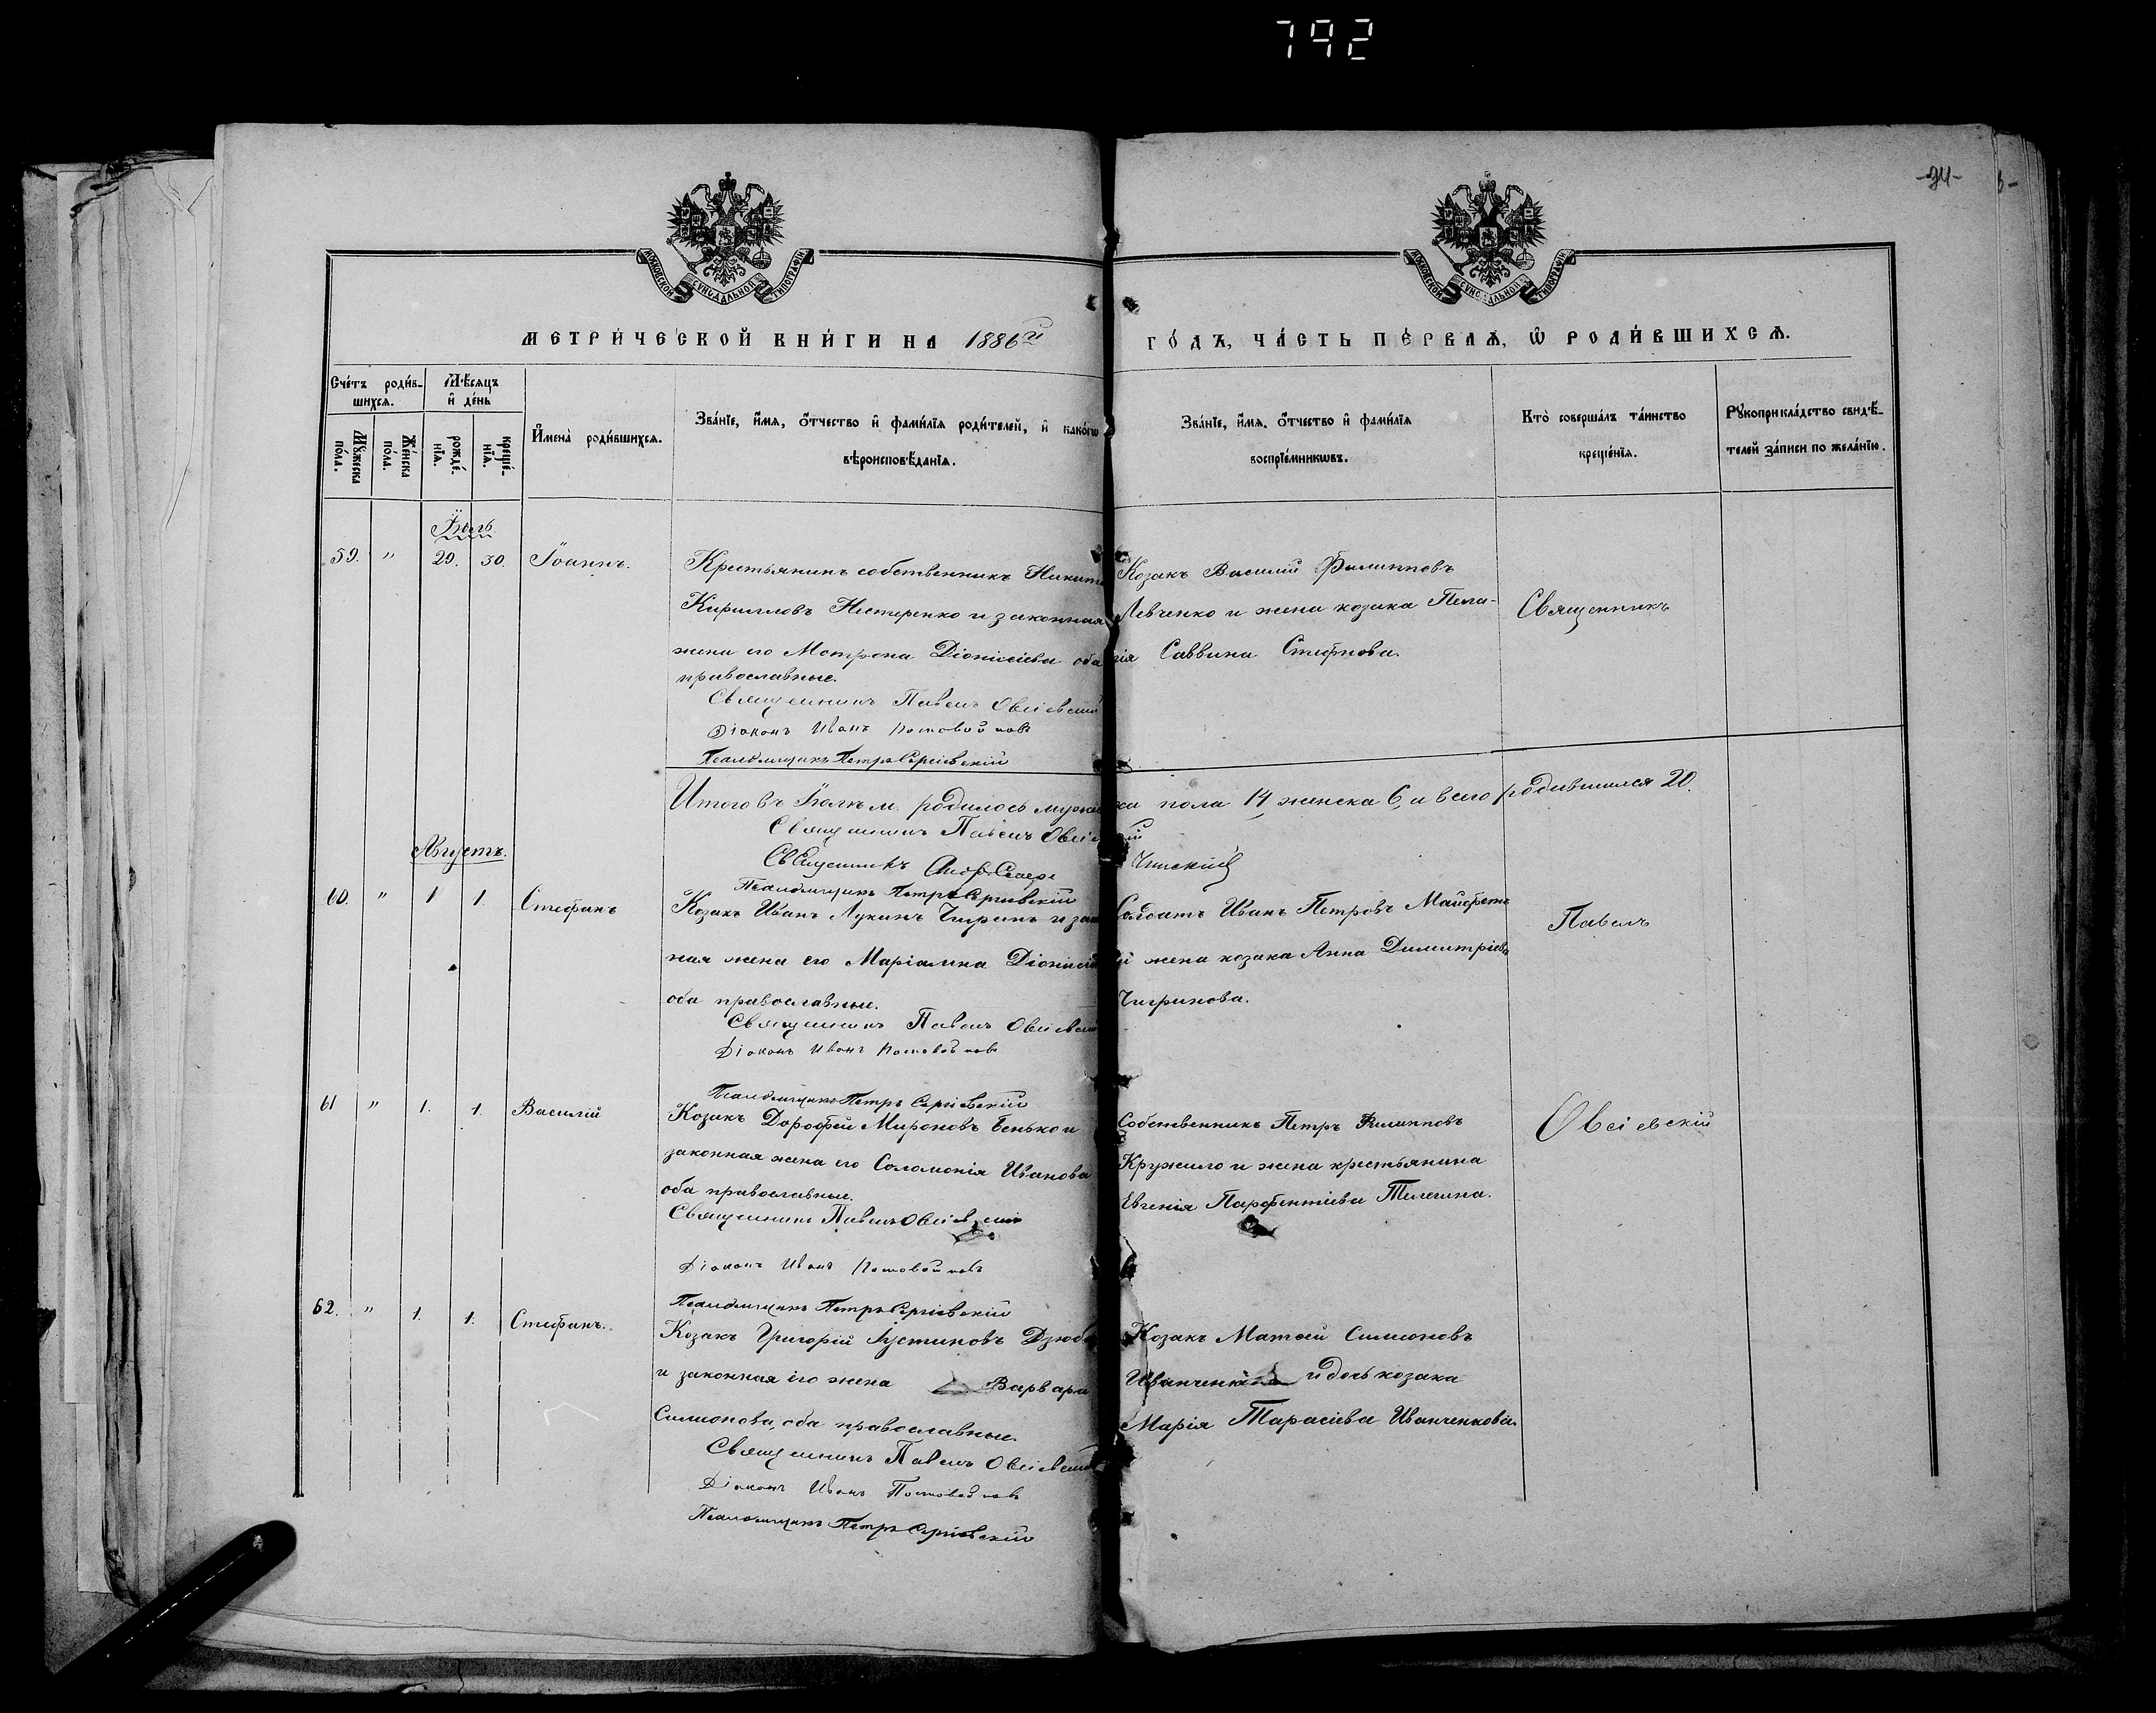 792
-94-
МОСКОВСКОЙ СУНОДАЛЬНОЙ ТИПОГРАФІИ
МОСКОВСКОЙ СУНОДАЛЬНОЙ ТИПОГРАФІИ
МЕТРИ́ЧЕСКОЙ КНИ́ГИ НА 1886й
ГО́ДЪ, ЧА́СТЬ ПЕ́РВАѦ, Ѡ РОДИ́ВШИХСѦ.
Сче́тъ роди́в-
шихсѧ.
Мѣ́сѧцъ
и҆ де́нь
Мꙋ́жеска
по́ла.
Же́нска
по́ла.
рожде́-
нїѧ.
креще́-
нїѧ.
И҆мена̀ роди́вшихсѧ.
Зва́нїе, и҆́мѧ, ѻ҆́тчество и҆ фами́лїѧ роди́телей, и҆ како́гѡ
вѣроисповѣ́данїѧ.
Зва́нїе, и҆́мѧ, ѻ҆́тчество и҆ фами́лїѧ
воспрїе́мникѡвъ.
Кто̀ соверша́лъ та́инство
креще́нїѧ.
Рꙋкоприкла́дство свидѣ́-
телей за́писи по жела́нїю.
Іюль
59. " 29. 30. Іоаннъ.
Крестьянинъ собственникъ Никита
Кирилловъ Нестеренко и законная
жена его Мотрона Діонисіева оба
православные.
Священникъ Павелъ Овсіевскій
Діаконъ Иванъ
Псаломщикъ Петръ Сергіевскій
Козакъ Василій Филипповъ
Левченко и жена козака Пела-
гія Саввина
Священникъ
Итого въ Іюлѣ м. родилось мужеска пола 14, женска 6, и всего родившихся 20.
Священникъ Павелъ Овсіевскій
Священникъ
Псаломщикъ Петръ Сергіевскій
Августъ.
60. " 1 1. Стефанъ
Козакъ Иванъ Лукинъ Чигринъ и закон
ная жена его Маріамна Діонисіева
оба православные.
Священникъ Павелъ Овсіевскій
Діаконъ Иванъ
Псаломщикъ Петръ Сергіевскій
Солдатъ Иванъ Петровъ
и жена козака Анна Димитріева
Чигринова.
Павелъ
61 " 1. 1. Василій
Козакъ Дорофей Мироновъ Бенько и
законная жена его Соломонія Иванова
оба православные.
Священникъ Павелъ Овсіевскій
Діаконъ Иванъ
Псаломщикъ Петръ Сергіевскій
Собственникъ Петръ Филипповъ
Кружило и жена крестьянина
Евгенія Парфентіева Телегина.
Овсіевскій
62. " 1. 1. Стефанъ.
Козакъ Григорій Іустиновъ Дзюба
и законная его жена Варвара
Симеонова, оба православные.
Священникъ Павелъ Овсіевскій
Діаконъ Иванъ
Псаломщикъ Петръ Сергіевскій
Козакъ Матѳей Симеоновъ
Иванченко и дочь козака
Марія Тарасіева Иванченкова.